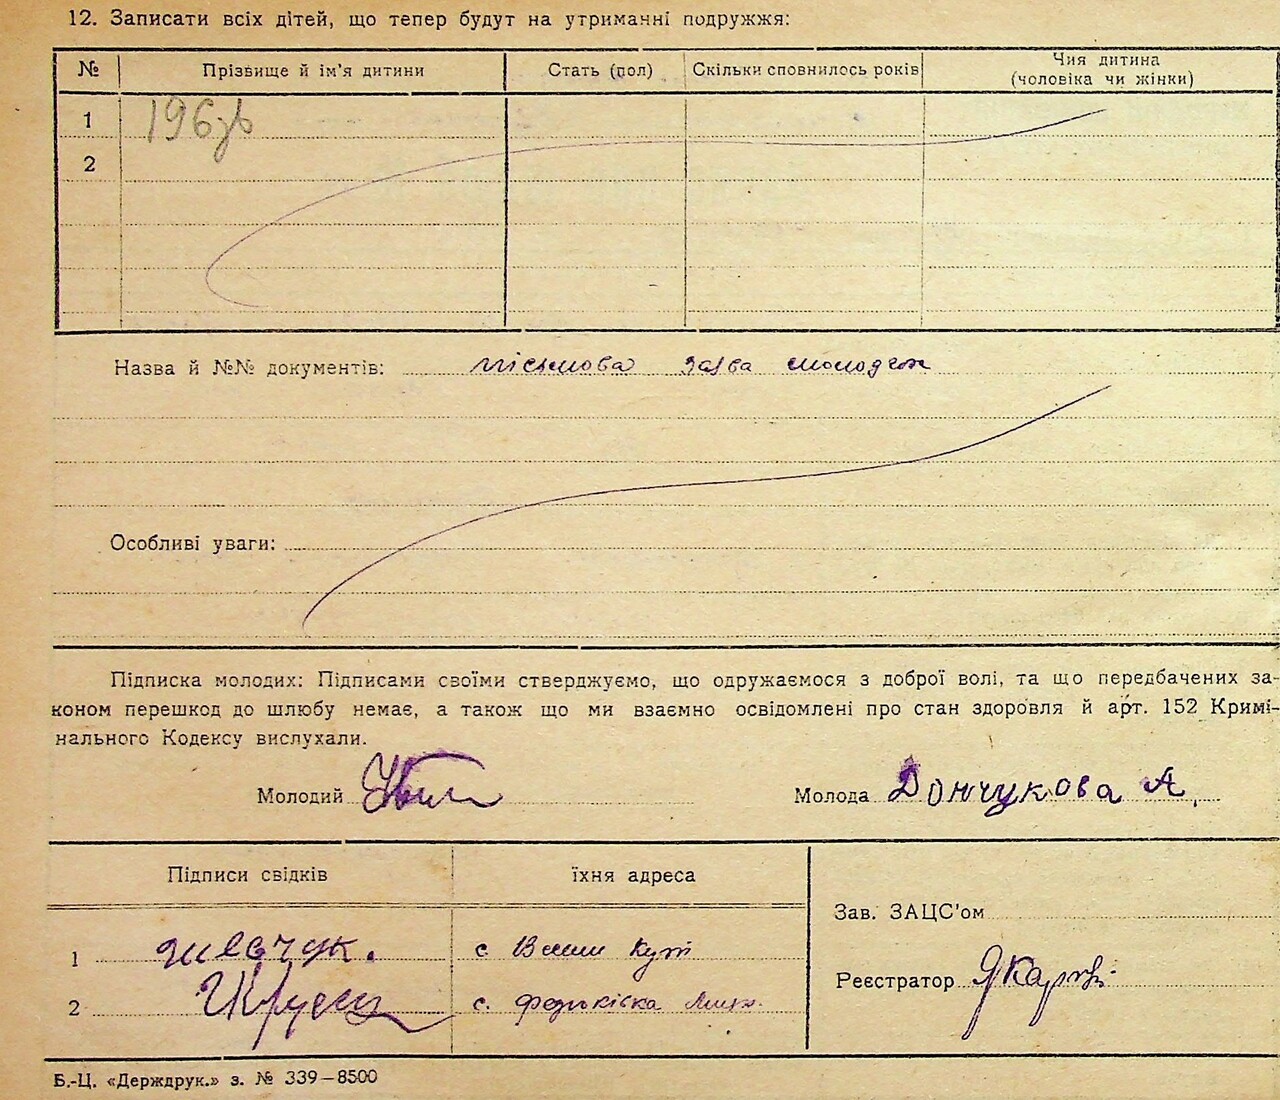 12. Записати всіх дітей, що тепер будут на утриманні подружжя:
№ Прізвище й ім'я дитини Стать (пол) Скільки сповнилось років Чия дитина
(чоловіка чи жінки)
1
2
Назва й №№ документів: письмова заява молодих
Особливі уваги:
Підписка молодих: Підписами своїми стверджуємо, що одружаємося з доброї волі, та що передбачених за-
коном перешкод до шлюбу немає, а також що ми взаємно освідомлені про стан здоров'я й арт. 152 Кримі-
нального Кодексу вислухали.
Молодий Молода Дончукова А
Підписи свідків їхня адреса
Зав. ЗАЦС'ом
1 Шевчук. с. Кут
Реєстратор
2 с.
Б.-Ц. «Держдрук.» з. № 339—8500